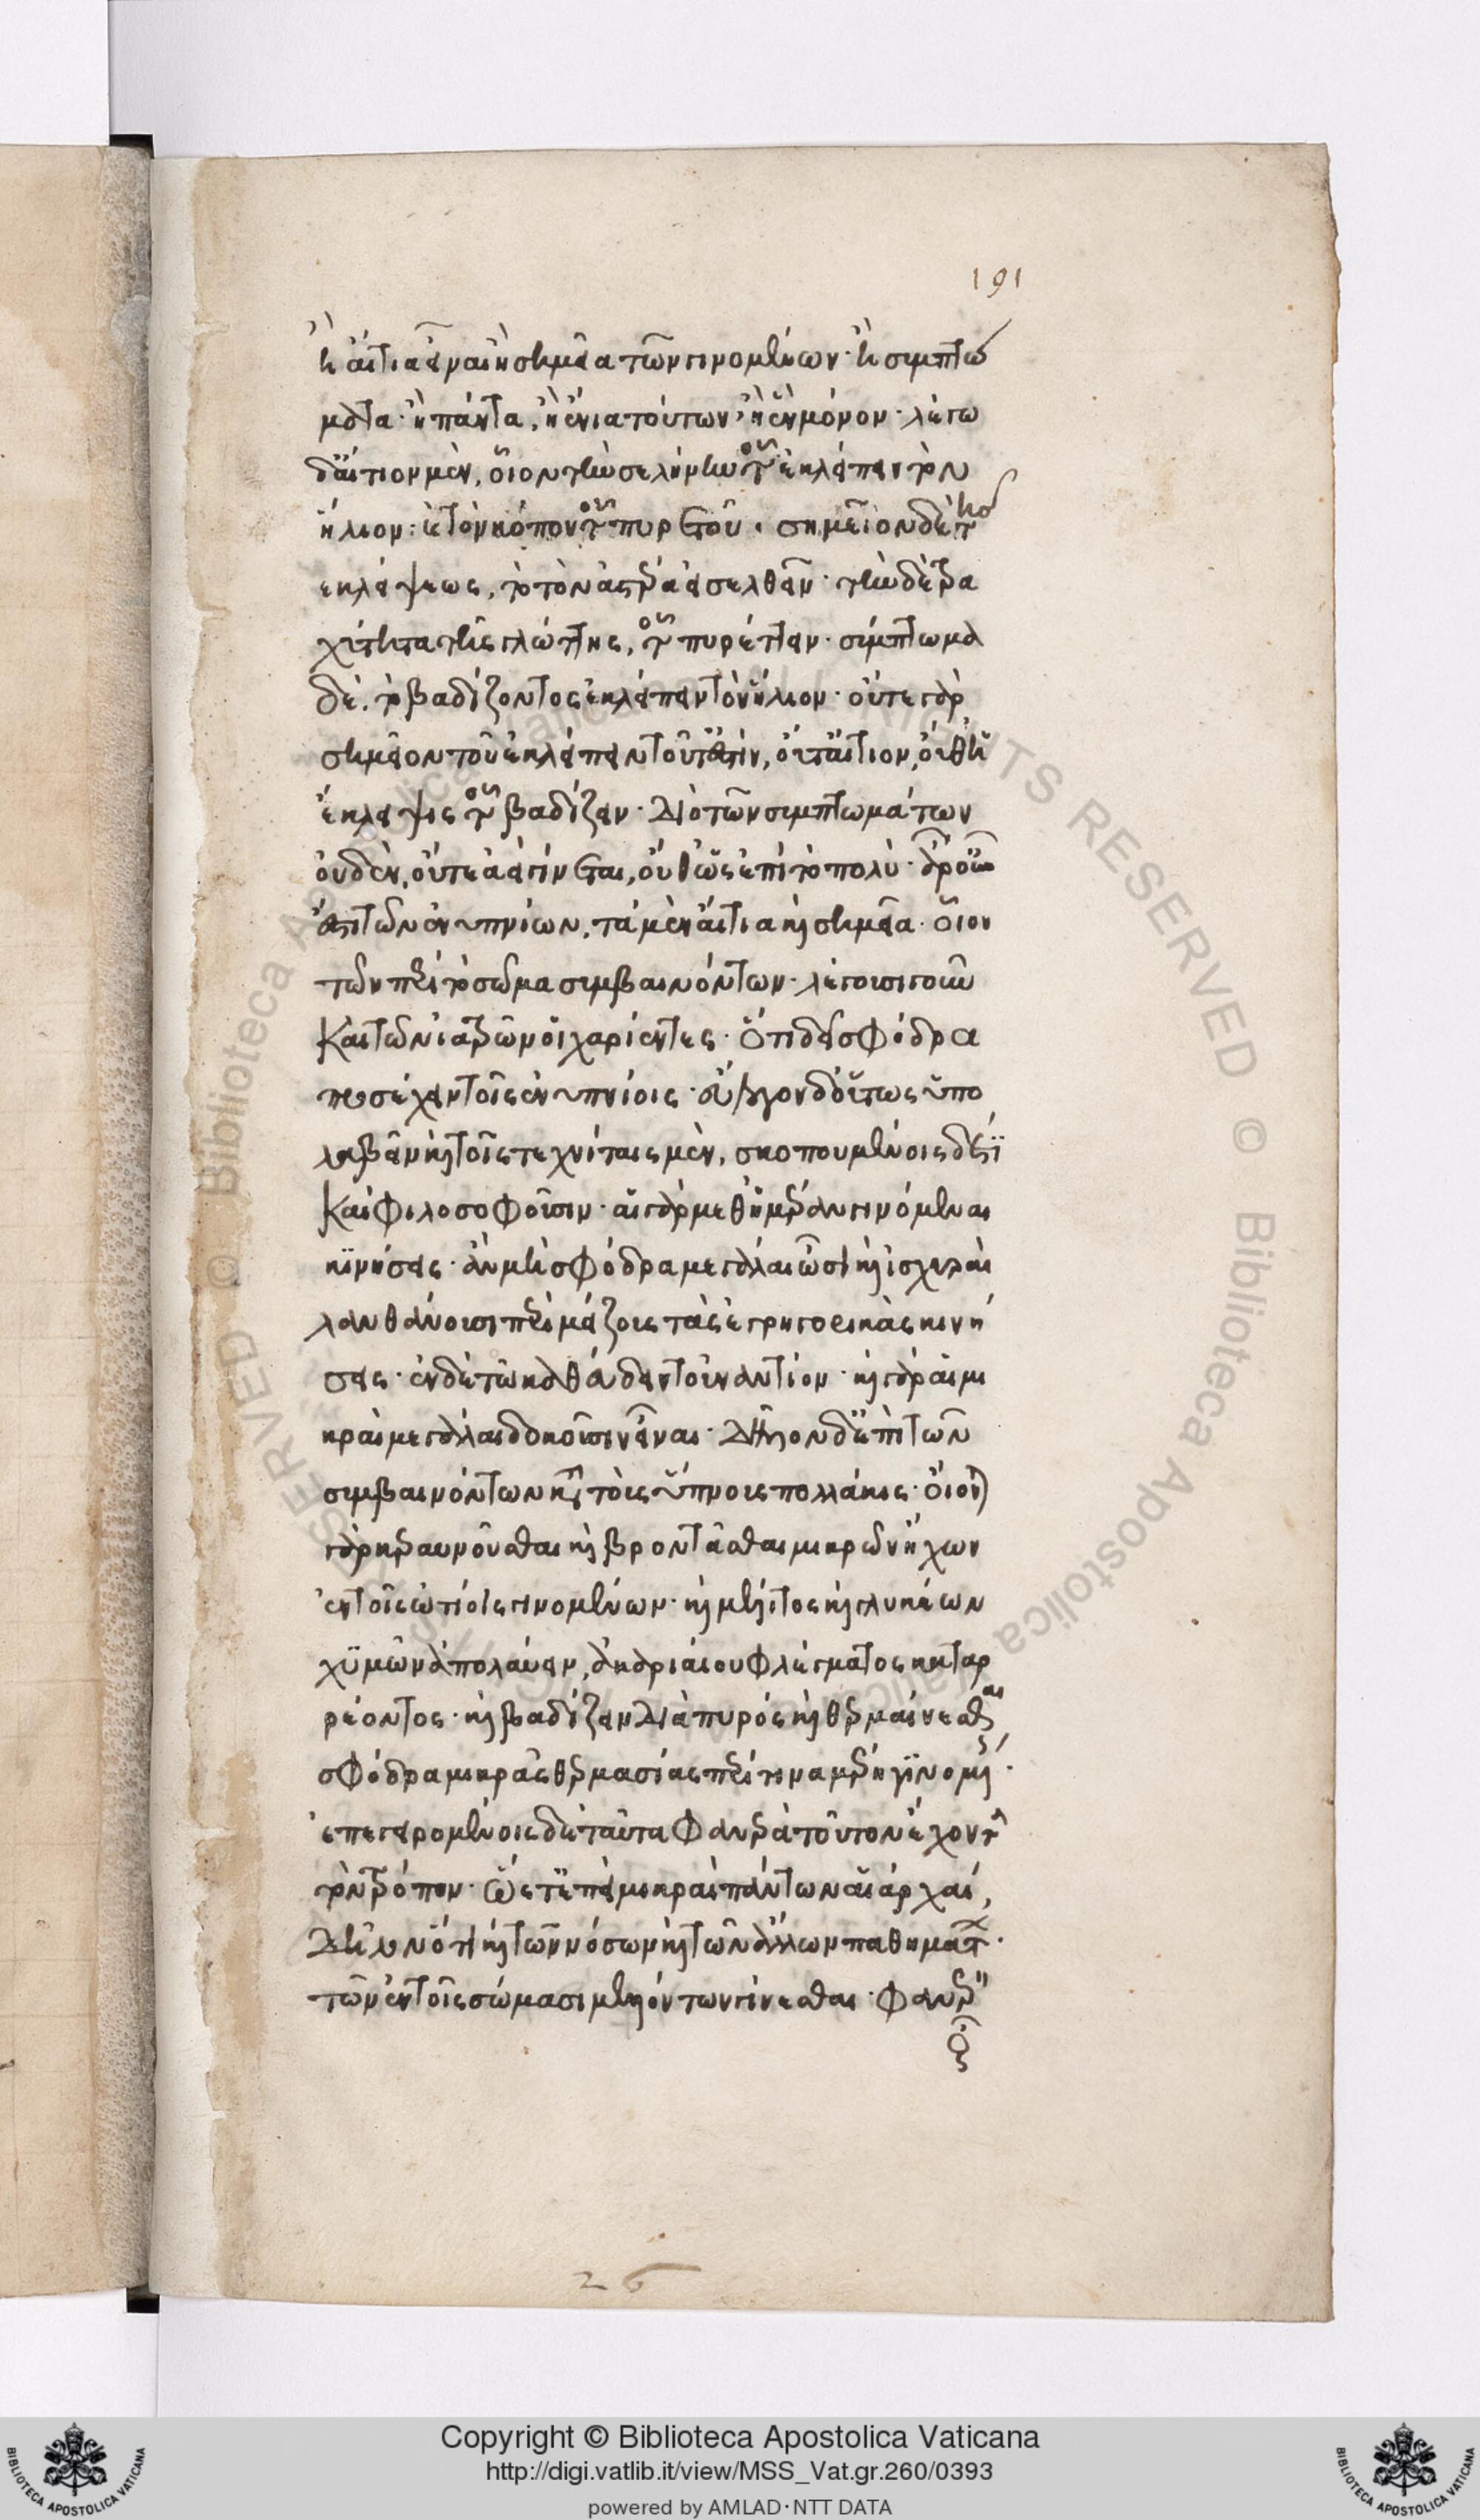 191
ἢ αἴτια εἶναι ἢ σημεῖα τῶν γινομένων· ἢ συμπτώ
ματα· ἢ πάντα, ἢ ἔνια τούτων, ἢ ἓν μόνον· λέγω
δ' αἴτιον μὲν, οἷον τὴν σελήνην τοῦ ἐκλείπειν τὸν
ἥλιον: καὶ τὸν κόπον τοῦ πυρετοῦ· σημεῖον δὲ τῆς
ἐκλείψεως, τὸ τὸν ἀστέρα εἰσελθεῖν· τὴν δὲ τρα
χύτητα τῆς γλώττης, τοῦ πυρέττειν· σύμπτωμα
δὲ, τὸ βαδίζοντος ἐκλείπειν τὸν ἥλιον· οὔτε γὰρ
σημεῖον τοῦ ἐκλείπειν τοῦτ' ἐστὶν, οὔτ' αἴτιον, οὔθ' ἡ
ἔκλειψις τοῦ βαδίζειν· διὸ τῶν συμπτωμάτων
οὐδὲν, οὔτε ἀεὶ γίνεται, οὔθ' ὡς ἐπὶ τὸ πολύ· ἆρ' οὖν
ἐστι τῶν ἐνυπνίων, τὰ μὲν αἴτια καὶ σημεῖα· οἷον
τῶν περὶ τὸ σῶμα συμβαινόντων· λέγουσι γοῦν
Καὶ τῶν ἰατρῶν οἱ χαρίεντες· ὅτι δεῖ σφόδρα
προσέχειν τοῖς ἐνυπνίοις· εὔλογον δ' οὕτως ὑπο
λαβεῖν καὶ τοῖς τεχνίταις μὲν, σκοπουμένοις δέ τι
Καὶ φιλοσοφοῦσιν· αἱ γὰρ μεθ' ἡμέραν γινόμεναι
κινήσεις· ἂν μὴ σφόδρα μεγάλαι ὦσι καὶ ἰσχυραὶ
λανθάνουσι περὶ μείζους τὰς ἐγρηγορικὰς κινή
σεις· ἐν δὲ τῷ καθεύδειν τοὐναντίον· καὶ γὰρ αἱ μι
κραὶ μεγάλαι δοκοῦσιν εἶναι· δῆλον δ' ἐπὶ τῶν
συμβαινόντων κατὰ τοὺς ὕπνους πολλάκις· οἴονται
γὰρ κεραυνοῦσθαι καὶ βροντᾶσθαι μικρῶν ἤχων
ἐν τοῖς ὠσὶ γινομένων· καὶ μέλιτος καὶ γλυκέων
χυμῶν ἀπολαύειν, ἀκαριαίου φλέγματος καταρ
ρέοντος· καὶ βαδίζειν διὰ πυρός καὶ θερμαίνεσθαι
σφόδρα μικρᾶς θερμασίας περί τινα μέρη γινομένης·
ἐπεγειρομένοις δὲ ταῦτα φανερὰ τοῦτον ἔχοντα
τὸν τρόπον· ὥστ' ἐπεὶ μικραὶ πάντων αἱ ἀρχαί,
δῆλον ὅτι καὶ τῶν νόσων καὶ τῶν ἄλλων παθημάτων·
τῶν ἐν τοῖς σώμασι μελλόντων γίνεσθαι· φανερὸν
26
Copyright © Biblioteca Apostolica Vaticana
http://digi.vatlib.it/view/MSS_Vat.gr.260/0393
powered by AMLAD·NTT DATA